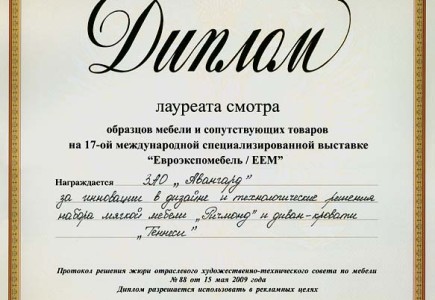 Диплом
лауреата смотра
образцов мебели и сопутствующих товаров
на 17-ой международной специализированной выставке
“Евроэкспомебель / EEM”
Награждается ЗАО „Авангард”
за инновации в дизайне и технологические решения
набора мягкой мебели „Ричмонд” и диван-кровати
„Теннеси”
Протокол решения жюри отраслевого художественно-технического совета по мебели
№ 88 от 15 мая 2009 года
Диплом разрешается использовать в рекламных целях